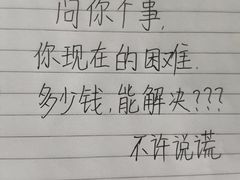 问你个事,
你现在的困难.
多少钱,能解决???
不许说谎